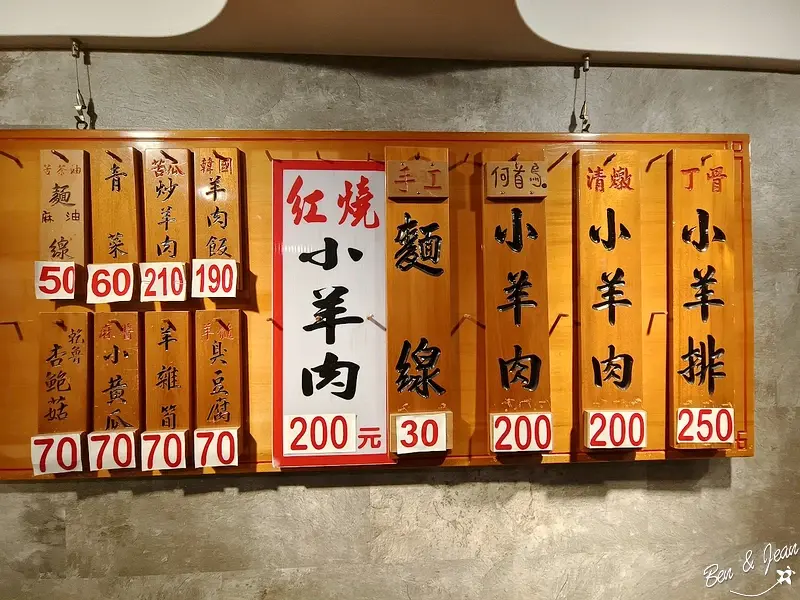 丁骨
小羊排
250元
清燉
小羊肉
200
何首烏
小羊肉
200
手工
麵線
30
紅燒
小羊肉
200元
韓國
羊肉飯
190
苦瓜
炒羊肉
210
青菜
60
苦茶油
麻油
麵線
50
臭豆腐
70
羊雜筍
70
小黃瓜
70
杏鮑菇
70
Ben & Jean